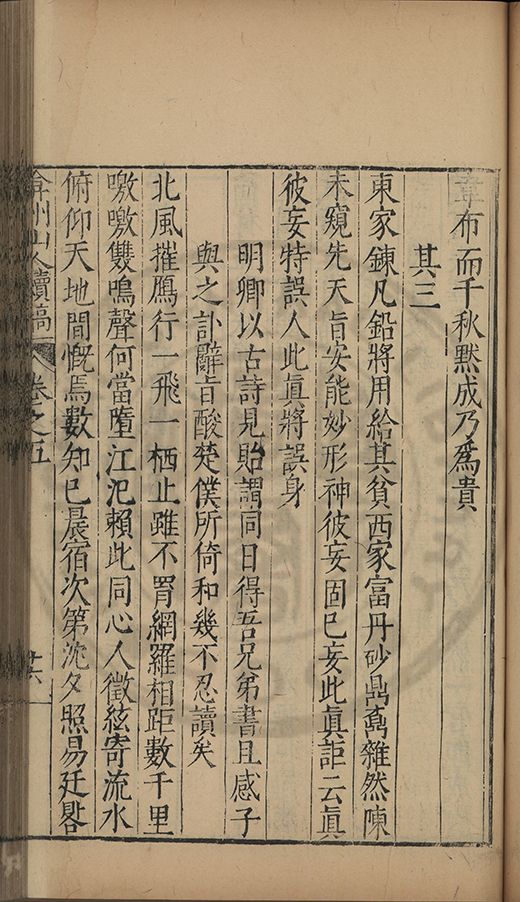 韋布而千秋默成乃爲貴
其三
東家鍊凡鉛將用給其貧西家富丹砂鼎鬲雜然陳
未窺先天旨安能妙形神彼妄固已妄此眞詎云眞
彼妄特誤人此眞將誤身
明卿以古詩見貽謂同日得吾兄弟書且感子
與之訃辭旨酸楚僕所倚和幾不忍讀矣
北風摧鴈行一飛一栖止雖不罥網羅相距數千里
嗷嗷雙鳴聲何當墮江汜賴此同心人徵絃寄流水
俯仰天地間慨焉數知已晨宿次第沈夕照易廷晷
弇州山人續稿 卷之五 十六